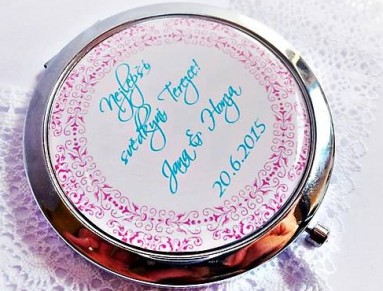 Nejlepší
svědkyni Terezce!
Jana & Honza
20.6.2015